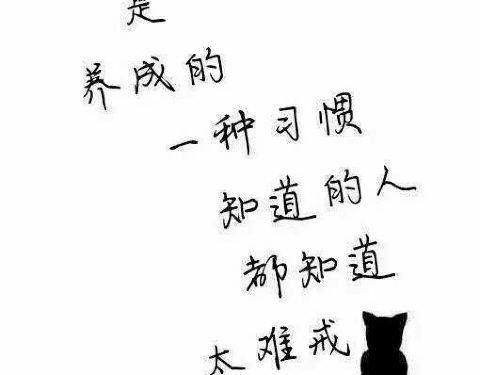 是
养成的
一种习惯
知道的人
都知道
太难戒